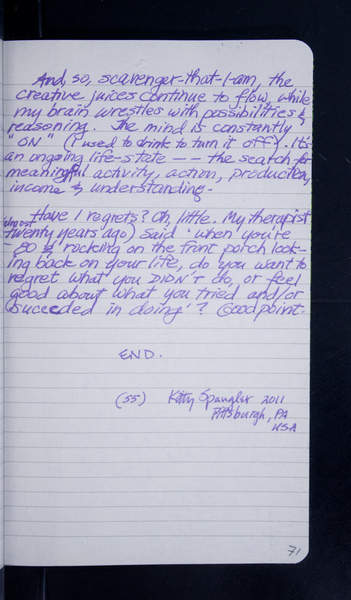 And, so, scavenger-that-I-am, the
creative juices continue to flow, while
my brain wrestles with possibilities &
reasoning. The mind is constantly
"ON" (I used to drink to turn it off). It's
an ongoing life-state -- the search for
meaningful activity, action, production,
income & understanding.
Have I regrets? Oh, little. My therapist
almost
twenty years ago) said 'when you're
80 & rocking on the front porch look-
ing back on your life, do you want to
regret what you DIDN'T do, or feel
good about what you tried and/or
succeeded in doing'? Good point.
END.
(55) Kitty Spangler 2011
Pittsburgh, PA
USA
71